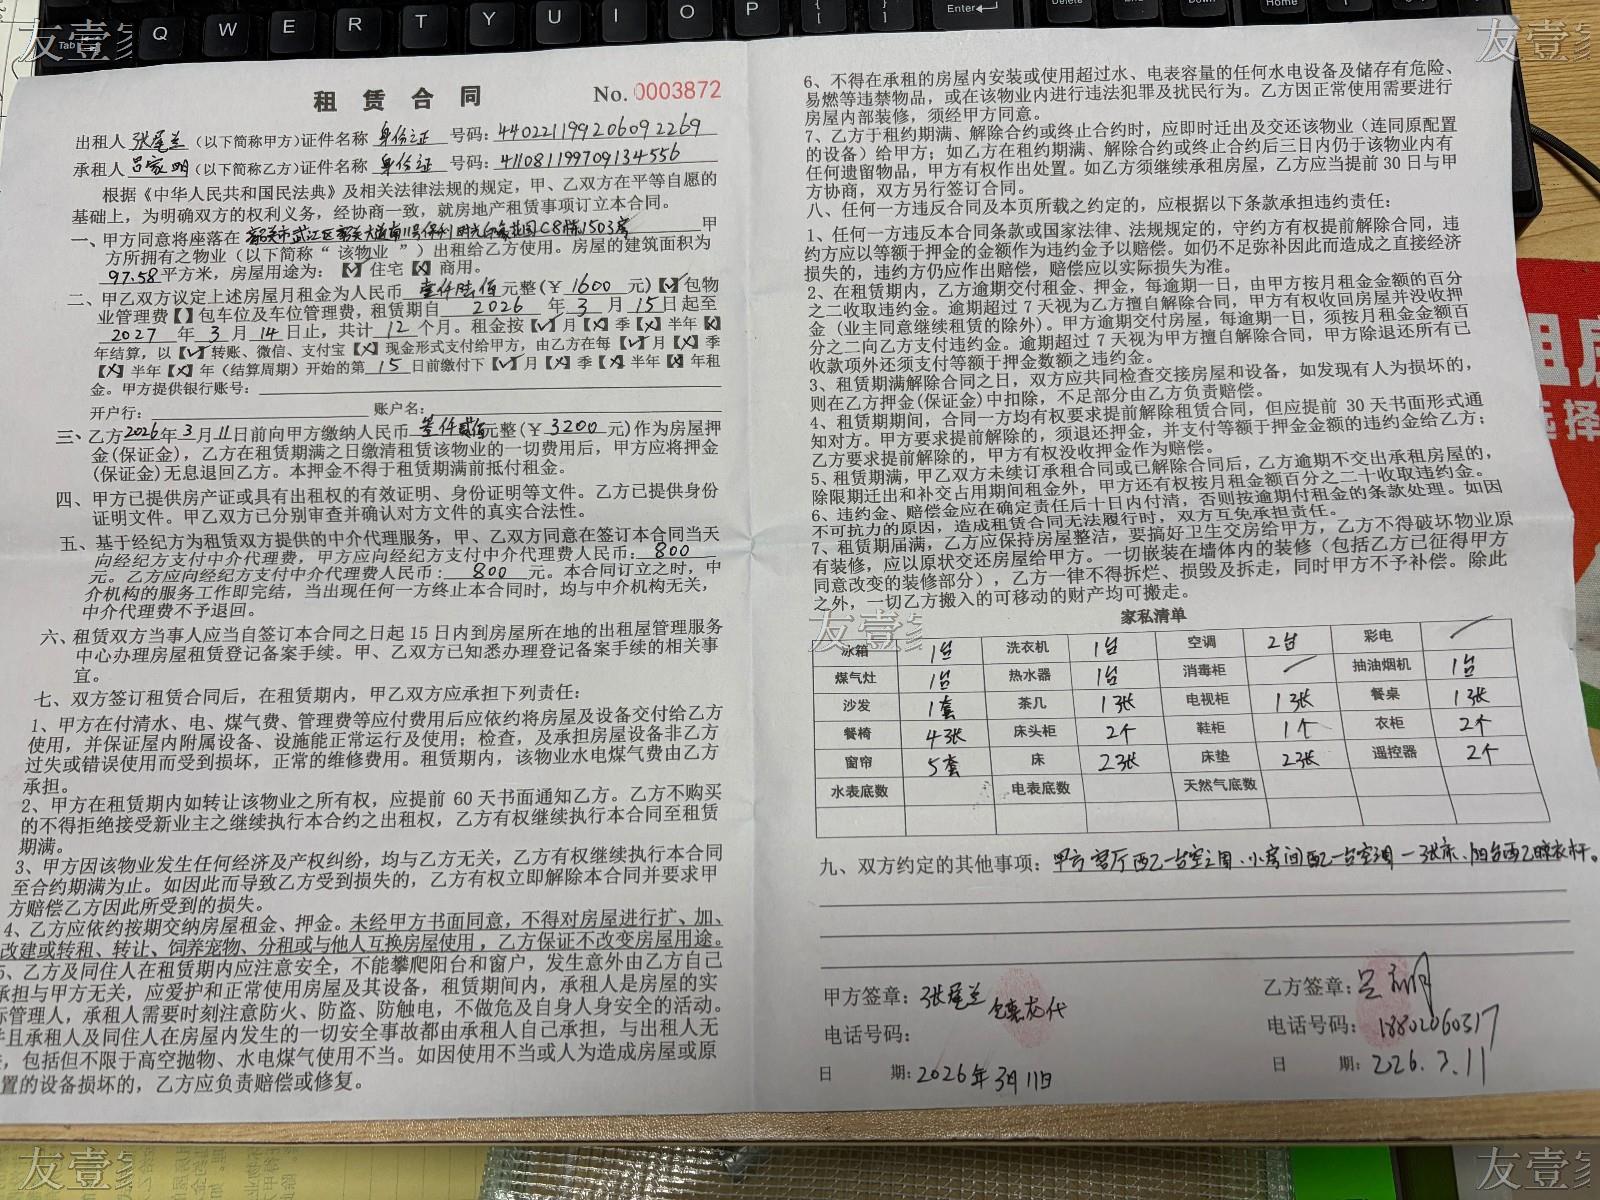 友壹家
友壹家
Tab Q W E R T Y U I O P { [ } ] Enter Delete End Down Home
租赁合同 No. 0003872
出租人 张尾兰 (以下简称甲方)证件名称 身份证 号码: 440221199206092269
承租人 吕家明 (以下简称乙方)证件名称 身份证 号码: 411081199709134556
根据《中华人民共和国民法典》及相关法律法规的规定，甲、乙双方在平等自愿的
基础上，为明确双方的权利义务，经协商一致，就房地产租赁事项订立本合同。
一、甲方同意将座落在 韶关市武江区韶关大道南11号保利时光印象花园C8栋1503房 甲
方所拥有之物业（以下简称“该物业”）出租给乙方使用。房屋的建筑面积为
97.58平方米，房屋用途为：【✓】住宅【✗】商用。
二、甲乙双方议定上述房屋月租金为人民币 壹仟陆佰 元整(￥ 1600 元)【✓】包物
业管理费【 】包车位及车位管理费，租赁期自 2026 年 3 月 15 日起至
2027 年 3 月 14 日止，共计 12 个月。租金按【✓】月【✗】季【✗】半年【✗】
年结算，以【✓】转账、微信、支付宝【✗】现金形式支付给甲方，由乙方在每【✓】月【✗】季
【✗】半年【✗】年（结算周期）开始的第 15 日前缴付下【✓】月【✗】季【✗】半年【✗】年租
金。甲方提供银行账号：
开户行： 账户名：
三、乙方2026年3月11日前向甲方缴纳人民币 叁仟贰佰元整(￥ 3200 元)作为房屋押
金(保证金)，乙方在租赁期满之日缴清租赁该物业的一切费用后，甲方应将押金
(保证金)无息退回乙方。本押金不得于租赁期满前抵付租金。
四、甲方已提供房产证或具有出租权的有效证明、身份证明等文件。乙方已提供身份
证明文件。甲乙双方已分别审查并确认对方文件的真实合法性。
五、基于经纪方为租赁双方提供的中介代理服务，甲、乙双方同意在签订本合同当天
向经纪方支付中介代理费，甲方应向经纪方支付中介代理费人民币: 800
元。乙方应向经纪方支付中介代理费人民币: 800 元。本合同订立之时，中
介机构的服务工作即完结，当出现任何一方终止本合同时，均与中介机构无关，
中介代理费不予退回。
六、租赁双方当事人应当自签订本合同之日起 15 日内到房屋所在地的出租屋管理服务
中心办理房屋租赁登记备案手续。甲、乙双方已知悉办理登记备案手续的相关事
宜。
七、双方签订租赁合同后，在租赁期内，甲乙双方应承担下列责任：
1、甲方在付清水、电、煤气费、管理费等应付费用后应依约将房屋及设备交付给乙方
使用，并保证屋内附属设备、设施能正常运行及使用；检查，及承担房屋设备非乙方
过失或错误使用而受到损坏，正常的维修费用。租赁期内，该物业水电煤气费由乙方
承担。
2、甲方在租赁期内如转让该物业之所有权，应提前 60 天书面通知乙方。乙方不购买
的不得拒绝接受新业主之继续执行本合约之出租权，乙方有权继续执行本合同至租赁
期满。
3、甲方因该物业发生任何经济及产权纠纷，均与乙方无关，乙方有权继续执行本合同
至合约期满为止。如因此而导致乙方受到损失的，乙方有权立即解除本合同并要求甲
方赔偿乙方因此所受到的损失。
4、乙方应依约按期交纳房屋租金、押金。未经甲方书面同意，不得对房屋进行扩、加、
改建或转租、转让、饲养宠物、分租或与他人互换房屋使用，乙方保证不改变房屋用途。
5、乙方及同住人在租赁期内应注意安全，不能攀爬阳台和窗户，发生意外由乙方自己
承担与甲方无关，应爱护和正常使用房屋及其设备，租赁期间内，承租人是房屋的实
际管理人，承租人需要时刻注意防火、防盗、防触电，不做危及自身人身安全的活动。
并且承租人及同住人在房屋内发生的一切安全事故都由承租人自己承担，与出租人无
，包括但不限于高空抛物、水电煤气使用不当。如因使用不当或人为造成房屋或原
置的设备损坏的，乙方应负责赔偿或修复。
6、不得在承租的房屋内安装或使用超过水、电表容量的任何水电设备及储存有危险、
易燃等违禁物品，或在该物业内进行违法犯罪及扰民行为。乙方因正常使用需要进行
房屋内部装修，须经甲方同意。
7、乙方于租约期满、解除合约或终止合约时，应即时迁出及交还该物业（连同原配置
的设备）给甲方；如乙方在租约期满、解除合约或终止合约后三日内仍于该物业内有
任何遗留物品，甲方有权作出处置。如乙方须继续承租房屋，乙方应当提前 30 日与甲
方协商，双方另行签订合同。
八、任何一方违反合同及本页所载之约定的，应根据以下条款承担违约责任：
1、任何一方违反本合同条款或国家法律、法规规定的，守约方有权提前解除合同，违
约方应以等额于押金的金额作为违约金予以赔偿。如仍不足弥补因此而造成之直接经济
损失的，违约方仍应作出赔偿，赔偿应以实际损失为准。
2、在租赁期内，乙方逾期交付租金、押金，每逾期一日，由甲方按月租金金额的百分
之二收取违约金。逾期超过 7 天视为乙方擅自解除合同，甲方有权收回房屋并没收押
金（业主同意继续租赁的除外）。甲方逾期交付房屋，每逾期一日，须按月租金金额百
分之二向乙方支付违约金。逾期超过 7 天视为甲方擅自解除合同，甲方除退还所有已
收款项外还须支付等额于押金数额之违约金。
3、租赁期满解除合同之日，双方应共同检查交接房屋和设备，如发现有人为损坏的，
则在乙方押金(保证金)中扣除，不足部分由乙方负责赔偿。
4、租赁期期间，合同一方均有权要求提前解除租赁合同，但应提前 30 天书面形式通
知对方。甲方要求提前解除的，须退还押金，并支付等额于押金金额的违约金给乙方；
乙方要求提前解除的，甲方有权没收押金作为赔偿。
5、租赁期满，甲乙双方未续订承租合同或已解除合同后，乙方逾期不交出承租房屋的，
除限期迁出和补交占用期间租金外，甲方还有权按月租金额百分之二十收取违约金。
6、违约金、赔偿金应在确定责任后十日内付清，否则按逾期付租金的条款处理。如因
不可抗力的原因，造成租赁合同无法履行时，双方互免承担责任。
7、租赁期届满，乙方应保持房屋整洁，要搞好卫生交房给甲方，乙方不得破坏物业原
有装修，应以原状交还房屋给甲方。一切嵌装在墙体内的装修（包括乙方已征得甲方
同意改变的装修部分），乙方一律不得拆烂、损毁及拆走，同时甲方不予补偿。除此
之外，一切乙方搬入的可移动的财产均可搬走。
友壹家
家私清单
冰箱 1台 洗衣机 1台 空调 2台 彩电
煤气灶 1台 热水器 1台 消毒柜 抽油烟机 1台
沙发 1套 茶几 1张 电视柜 1张 餐桌 1张
餐椅 4张 床头柜 2个 鞋柜 1个 衣柜 2个
窗帘 5套 床 2张 床垫 2张 遥控器 2个
水表底数 电表底数 天然气底数
九、双方约定的其他事项：甲方客厅配一台空调、小房间配一台空调一张床、阳台配晾衣杆。
甲方签章：张尾兰 代
电话号码：
日 期：2026年3月11日
乙方签章：吕家明
电话号码：18802060317
日 期：2026.3.11
租房
选择
友壹家
友壹家